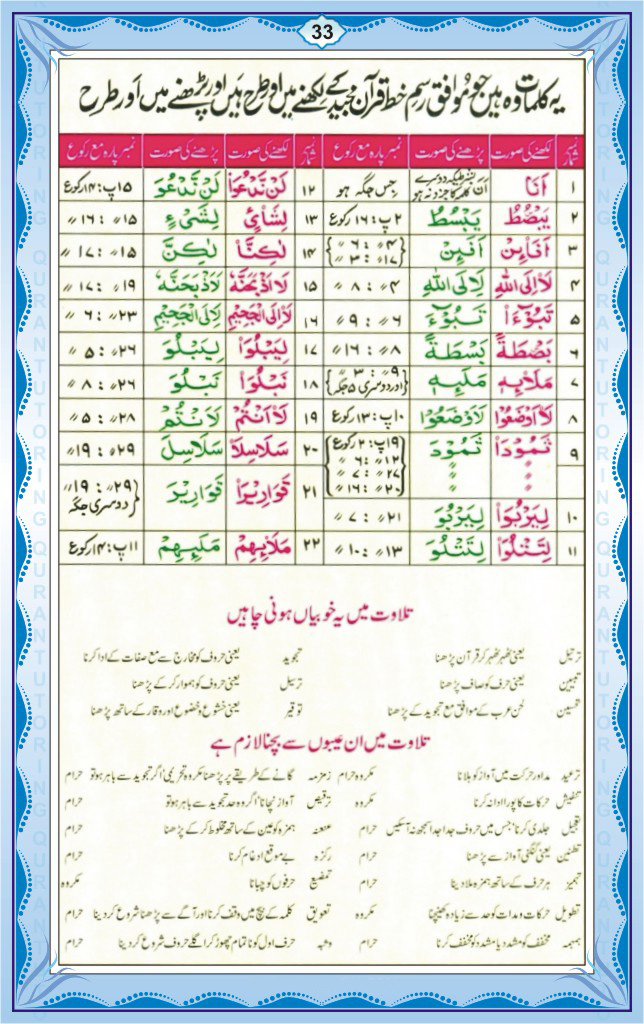 33
یہ کلمات وہ ہیں جو موافق رسم خط قرآن مجید کے لکھنے میں اور طرح ہیں اور پڑھنے میں اور طرح
نمبر شمار لکھنے کی صورت پڑھنے کی صورت نمبر پارہ مع رکوع نمبر شمار لکھنے کی صورت پڑھنے کی صورت نمبر پارہ مع رکوع
۱ اَنَا اَنَ جس جگہ ہو ۱۲ لَنْ نَّدْعُوَا۟ لَنْ نَّدْعُوَ ۱۵پ: ۱۴رکوع
۲ يَبْصُۜطُ يَبْسُطُ ۲پ: ۱۶رکوع ۱۳ لِشَا۟ىْءٍ لِشَىْءٍ ۱۵〃: ۱۶〃
۳ اَفَا۟ئِنْ اَفَئِنْ ۴〃: ۶〃 ۱۷〃: ۳〃 ۱۴ لٰكِنَّا۟ لٰكِنَّ ۱۵〃: ۱۷〃
۴ لَا۟اِلَى اللهِ لَاِلَى اللهِ ۴〃: ۸〃 ۱۵ لَا۟اَذْبَحَنَّهٗ لَاَذْبَحَنَّهٗ ۱۹〃: ۱۷〃
۵ تَبُوْٓءَا۟ تَبُوْٓءَ ۶〃: ۹〃 ۱۶ لَا۟اِلَى الْجَحِيْمِ لَاِلَى الْجَحِيْمِ ۲۳〃: ۶〃
۶ بَصْۜطَةً بَسْطَةً ۸〃: ۱۶〃 ۱۷ لِيَبْلُوَا۟ لِيَبْلُوَ ۲۶〃: ۵〃
۷ مَلَا۟ئِهٖ مَلَئِهٖ ۹〃: ۳〃 اور دوسری ۵ جگہ ۱۸ نَبْلُوَا۟ نَبْلُوَ ۲۶〃: ۸〃
۸ لَا۟اَوْضَعُوْا لَاَوْضَعُوْا ۱۰پ: ۱۳رکوع ۱۹ لَا۟اَنْتُمْ لَاَنْتُمْ ۲۸〃: ۵〃
۹ ثَمُوْدَا۟ ثَمُوْدَ ۱۲〃: ۶〃 ۱۹پ: ۲رکوع ۲۰〃: ۱۶〃 ۲۷〃: ۷〃 ۲۰ سَلَاسِلَا۟ سَلَاسِلَ ۲۹〃: ۱۹〃
۲۱ قَوَارِيْرَا۟ قَوَارِيْرَ ۲۹〃: ۱۹〃 دوسری جگہ
۱۰ لِيَرْبُوَا۟ لِيَرْبُوَ ۲۱〃: ۷〃
۱۱ لِتَتْلُوَا۟ لِتَتْلُوَ ۱۳〃: ۱۰〃 ۲۲ مَلَا۟ئِهِمْ مَلَئِهِمْ ۱۱پ: ۱۴رکوع
تلاوت میں یہ خوبیاں ہونی چاہیں
ترتیل یعنی ٹھہر ٹھہر کر قرآن پڑھنا تجوید یعنی حروف کو مخارج سے مع صفات کے ادا کرنا
تبیین یعنی حرف کو صاف پڑھنا ترسیل یعنی حروف کو ہموار کر کے پڑھنا
تحسین لحن عرب کے موافق مع تجوید کے پڑھنا توقیر یعنی خشوع و خضوع اور وقار کے ساتھ پڑھنا
تلاوت میں ان عیبوں سے بچنا لازم ہے
ترعید مد اور حرکت میں آواز کو ہلانا مکروہ حرام زمزمہ گانے کے طریقے پر پڑھنا مکروہ تحریمی اگر تجوید سے باہر ہو تو حرام
حرکات کا پورا ادا نہ کرنا مکروہ ترقیص آواز نچانا اگر وہ حد تجوید سے باہر ہو تو حرام
جلدی کرنا، جس میں حروف جدا جدا سمجھ نہ آ سکیں حرام عنعنہ ہمزہ کو عین کے ساتھ مخلوط کر کے پڑھنا حرام
یعنی گنگنی آواز سے پڑھنا حرام بے موقع ادغام کرنا حرام
ہر حرف کے ساتھ ہمزہ ملا دینا حرام حرفوں کو چبانا مکروہ
تطویل حرکات و مدات کو حد سے زیادہ کھینچنا مکروہ تعویق کلمہ کے بیچ میں وقف کرنا اور آگے سے پڑھنا شروع کر دینا حرام
ہمہمہ مخفف کو مشدد یا مشدد کو مخفف کرنا حرام وثبہ حرف اول کو ناتمام چھوڑ کر اگلے حروف شروع کر دینا حرام
QURAN TUTORING QURAN TUTORING
QURAN TUTORING QURAN TUTORING